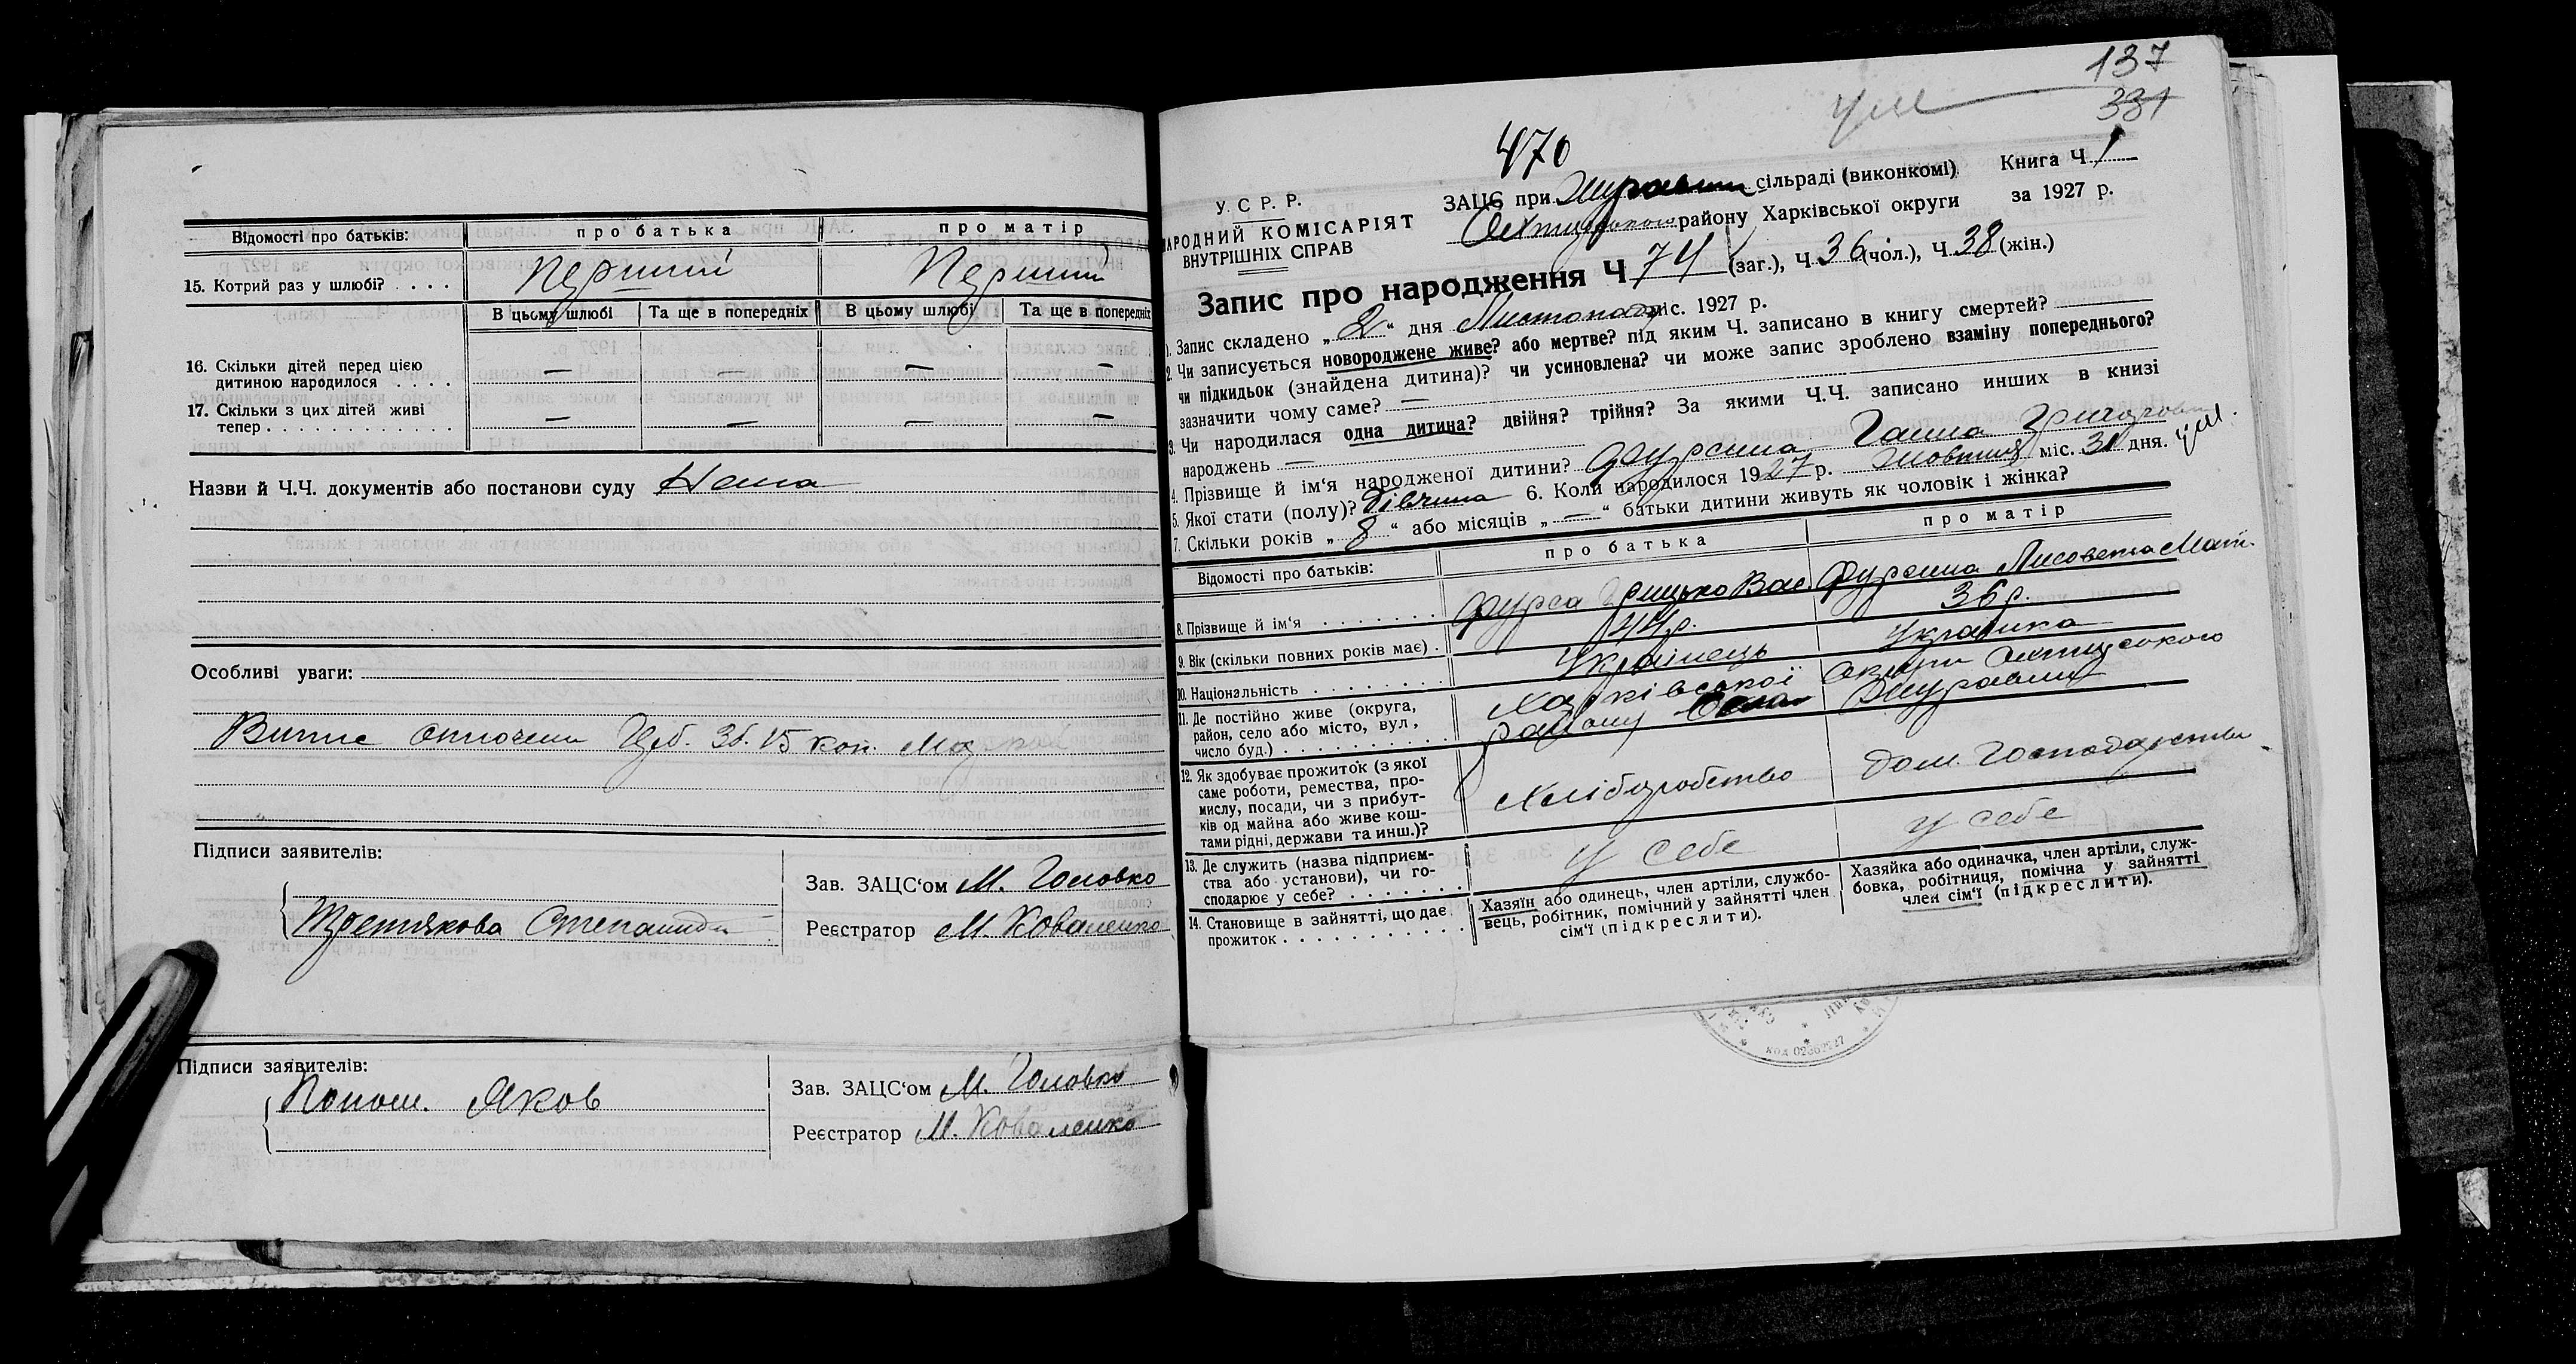 Відомості про батьків: про батька про матір
15. Котрий раз у шлюбі? . . . . Перший Перший
В цьому шлюбі Та ще в попередніх В цьому шлюбі Та ще в попередніх
16. Скільки дітей перед цією
дитиною народилося . . . . — — — —
17. Скільки з цих дітей живі
тепер . . . . . . . . . . . . — — — —
Назви й Ч.Ч. документів або постанови суду Нема
Особливі уваги:
Випис сплочени Герб. Зб. 15 коп.
Підписи заявителів:
Третякова Степанида
Зав. ЗАЦС‘ом М. Головко
Реєстратор М. Коваленко
Підписи заявителів:
Яков
Зав. ЗАЦС‘ом М. Головко
Реєстратор М. Коваленко
137
331
470
У. С. Р. Р.
НАРОДНИЙ КОМІСАРІЯТ
ВНУТРІШНІХ СПРАВ
ЗАЦС при Журавин сільраді (виконкомі)
Охтирського району Харківської округи
Книга Ч 1
за 1927 р.
Запис про народження Ч 74 (заг.), Ч 36 (чол.), Ч 38 (жін.)
1. Запис складено „ 2 “ дня Листопад міс. 1927 р.
2. Чи записується новороджене живе? або мертве? під яким Ч. записано в книгу смертей?
чи підкидьок (знайдена дитина)? чи усиновлена? чи може запис зроблено взаміну попереднього?
зазначити чому саме? —
3. Чи народилася одна дитина? двійня? трійня? За якими Ч.Ч. записано инших в книзі
народжень —
4. Прізвище й ім‘я народженої дитини? Фурсина Ганна Григоровн
5. Якої стати (полу)? Дівчина 6. Коли народилося 1927 р. Жовтня міс. 31 дня.
7. Скільки років „ 8 “ або місяців „ — “ батьки дитини живуть як чоловік і жінка?
Відомості про батьків: про батька про матір
8. Прізвище й ім‘я . . . . . . . Фурса Грицько Вас. Фурсина Лисовета Мат.
9. Вік (скільки повних років має) . 44 р. 36 р.
10. Національність . . . . . . . . Українець Українка
11. Де постійно живе (округа,
район, село або місто, вул.,
число буд.) . . . . . . . . . . Харківської округи Охтирського
району Села Журавин
12. Як здобуває прожиток (з якої
саме роботи, ремества, про-
мислу, посади, чи з прибут-
ків од майна або живе кош-
тами рідні, держави та инш.)? Хліборобство Дом. Господарство
13. Де служить (назва підприєм-
ства або установи), чи го-
сподарює у себе? . . . . . . . у себе у себе
14. Становище в зайнятті, що дає
прожиток . . . . . . . . . . .
Хазяїн або одинець, член артіли, службо-
вець, робітник, помічний у зайнятті член
сім‘ї (підкреслити).
Хазяйка або одиначка, член артіли, служ-
бовка, робітниця, помічна у зайнятті
член сім‘ї (підкреслити).